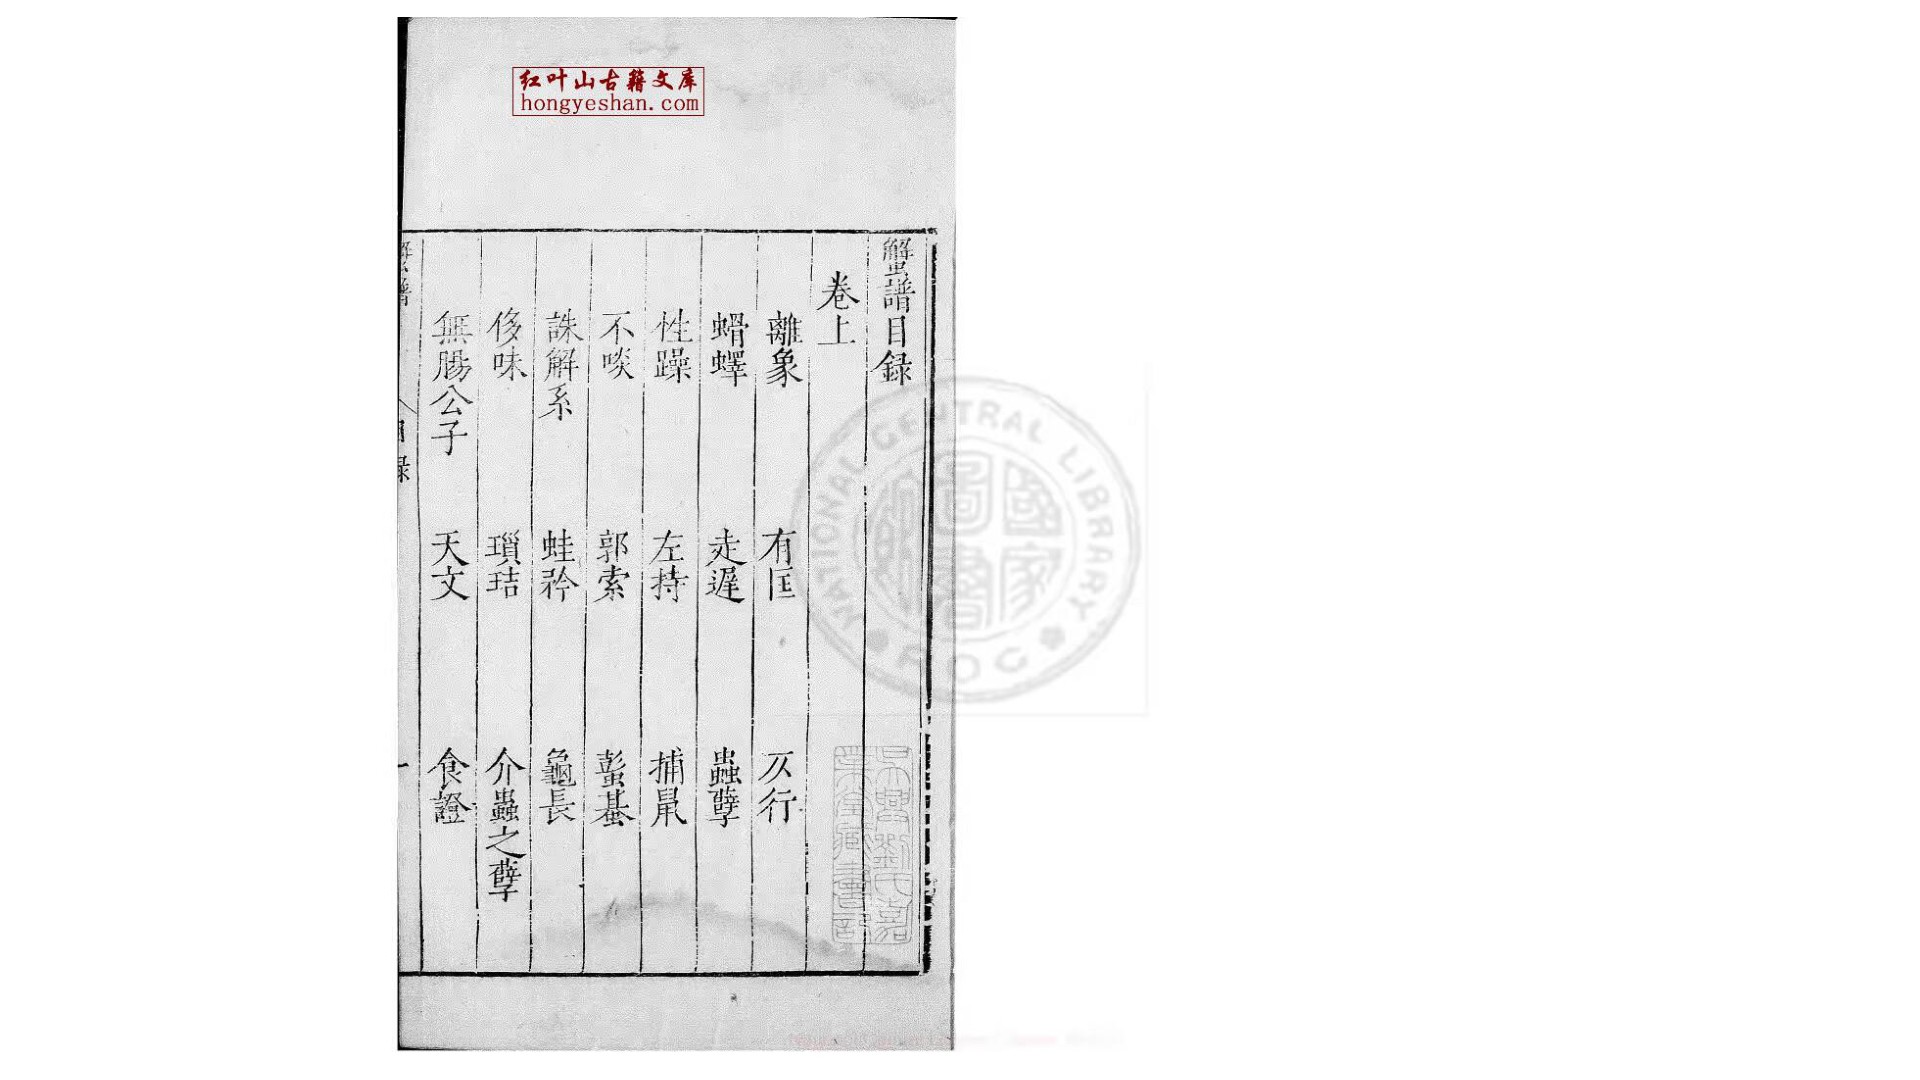 红叶山古籍文库
hongyeshan.com
蟹譜目錄
卷上
離象 有匡 仄行
蝑蠌 走遲 蟲孽
性躁 左持 捕鼠
不啖 郭索 蟚蜞
誅解系 蛙矜 龜長
侈味 瑣玤 介蟲之孽
無腸公子 天文 食證
蟹譜 目錄 一
NATIONAL CENTRAL LIBRARY
ROC
國家圖書館
吳興劉氏嘉業堂藏書記